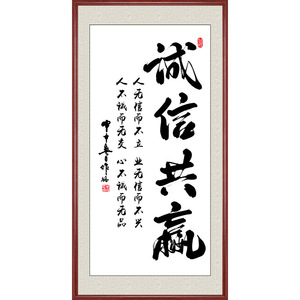 诚信共赢
人无信而不立 业无信而不兴
人不诚而无友 心不诚而无品